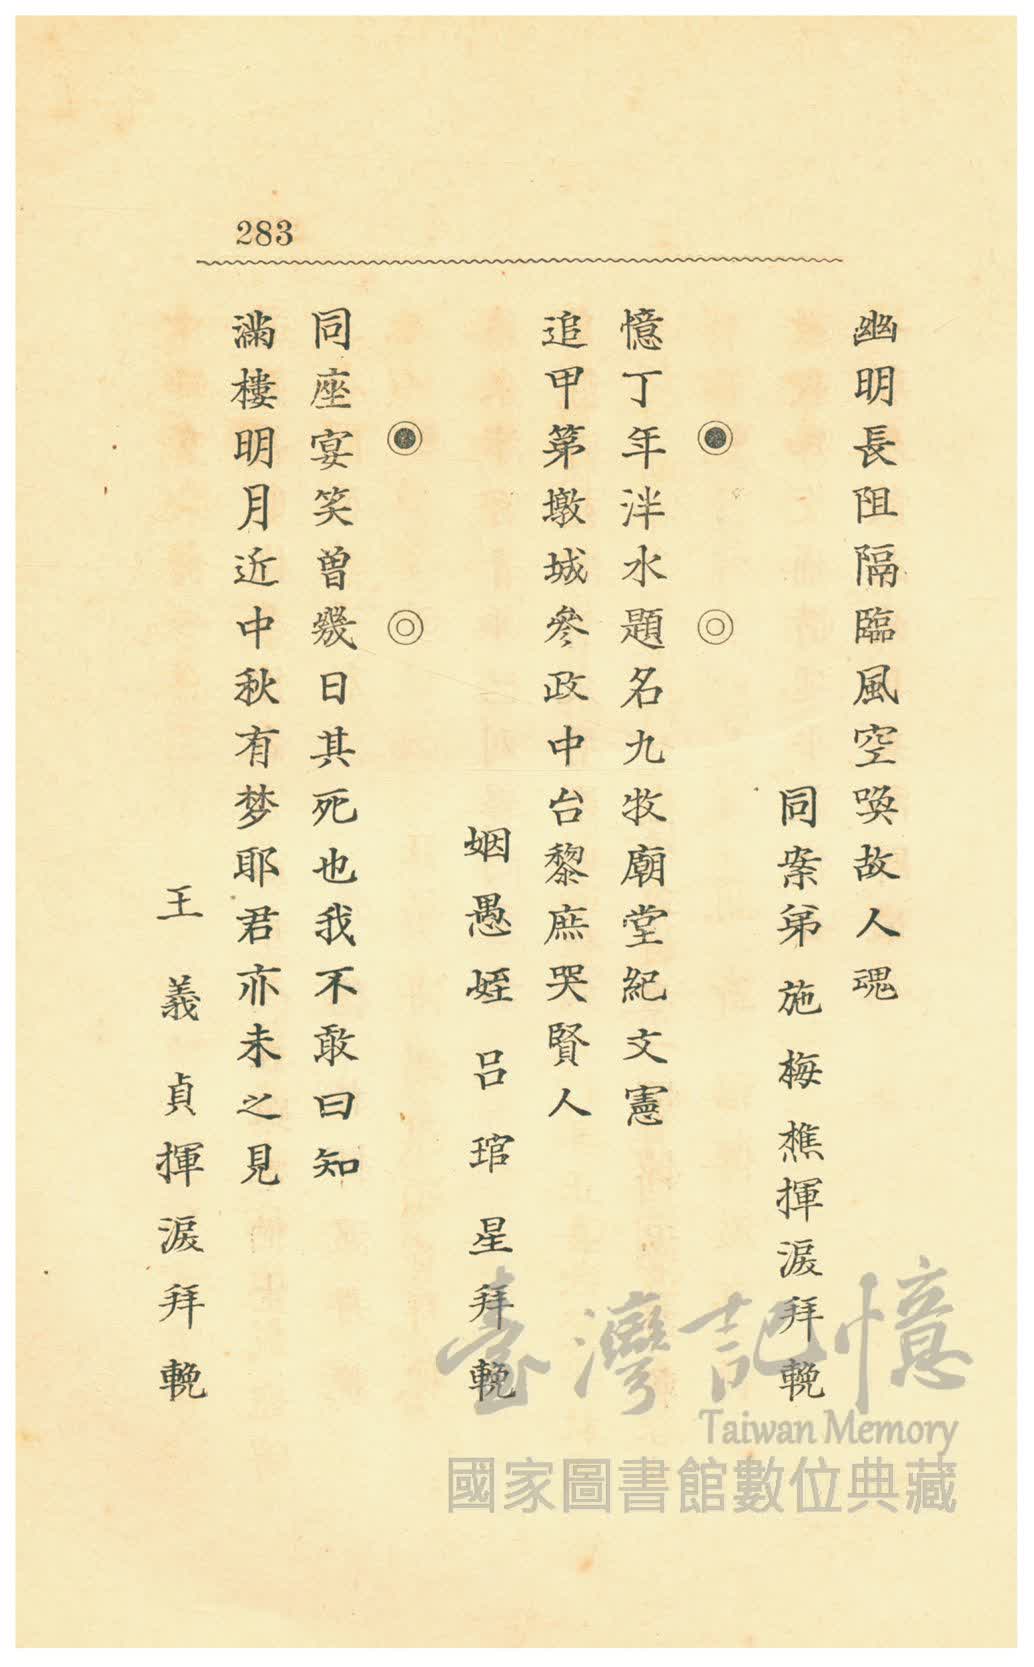 283
幽明長阻隔臨風空喚故人魂
同案弟施梅樵揮淚拜輓
憶丁年泮水題名九牧廟堂紀文憲
追甲第墩城參政中台黎庶哭賢人
姻愚姪呂琯星拜輓
同座宴笑曾幾日其死也我不敢曰知
滿樓明月近中秋有梦耶君亦未之見
王義貞揮淚拜輓
臺灣記憶
Taiwan Memory
國家圖書館數位典藏